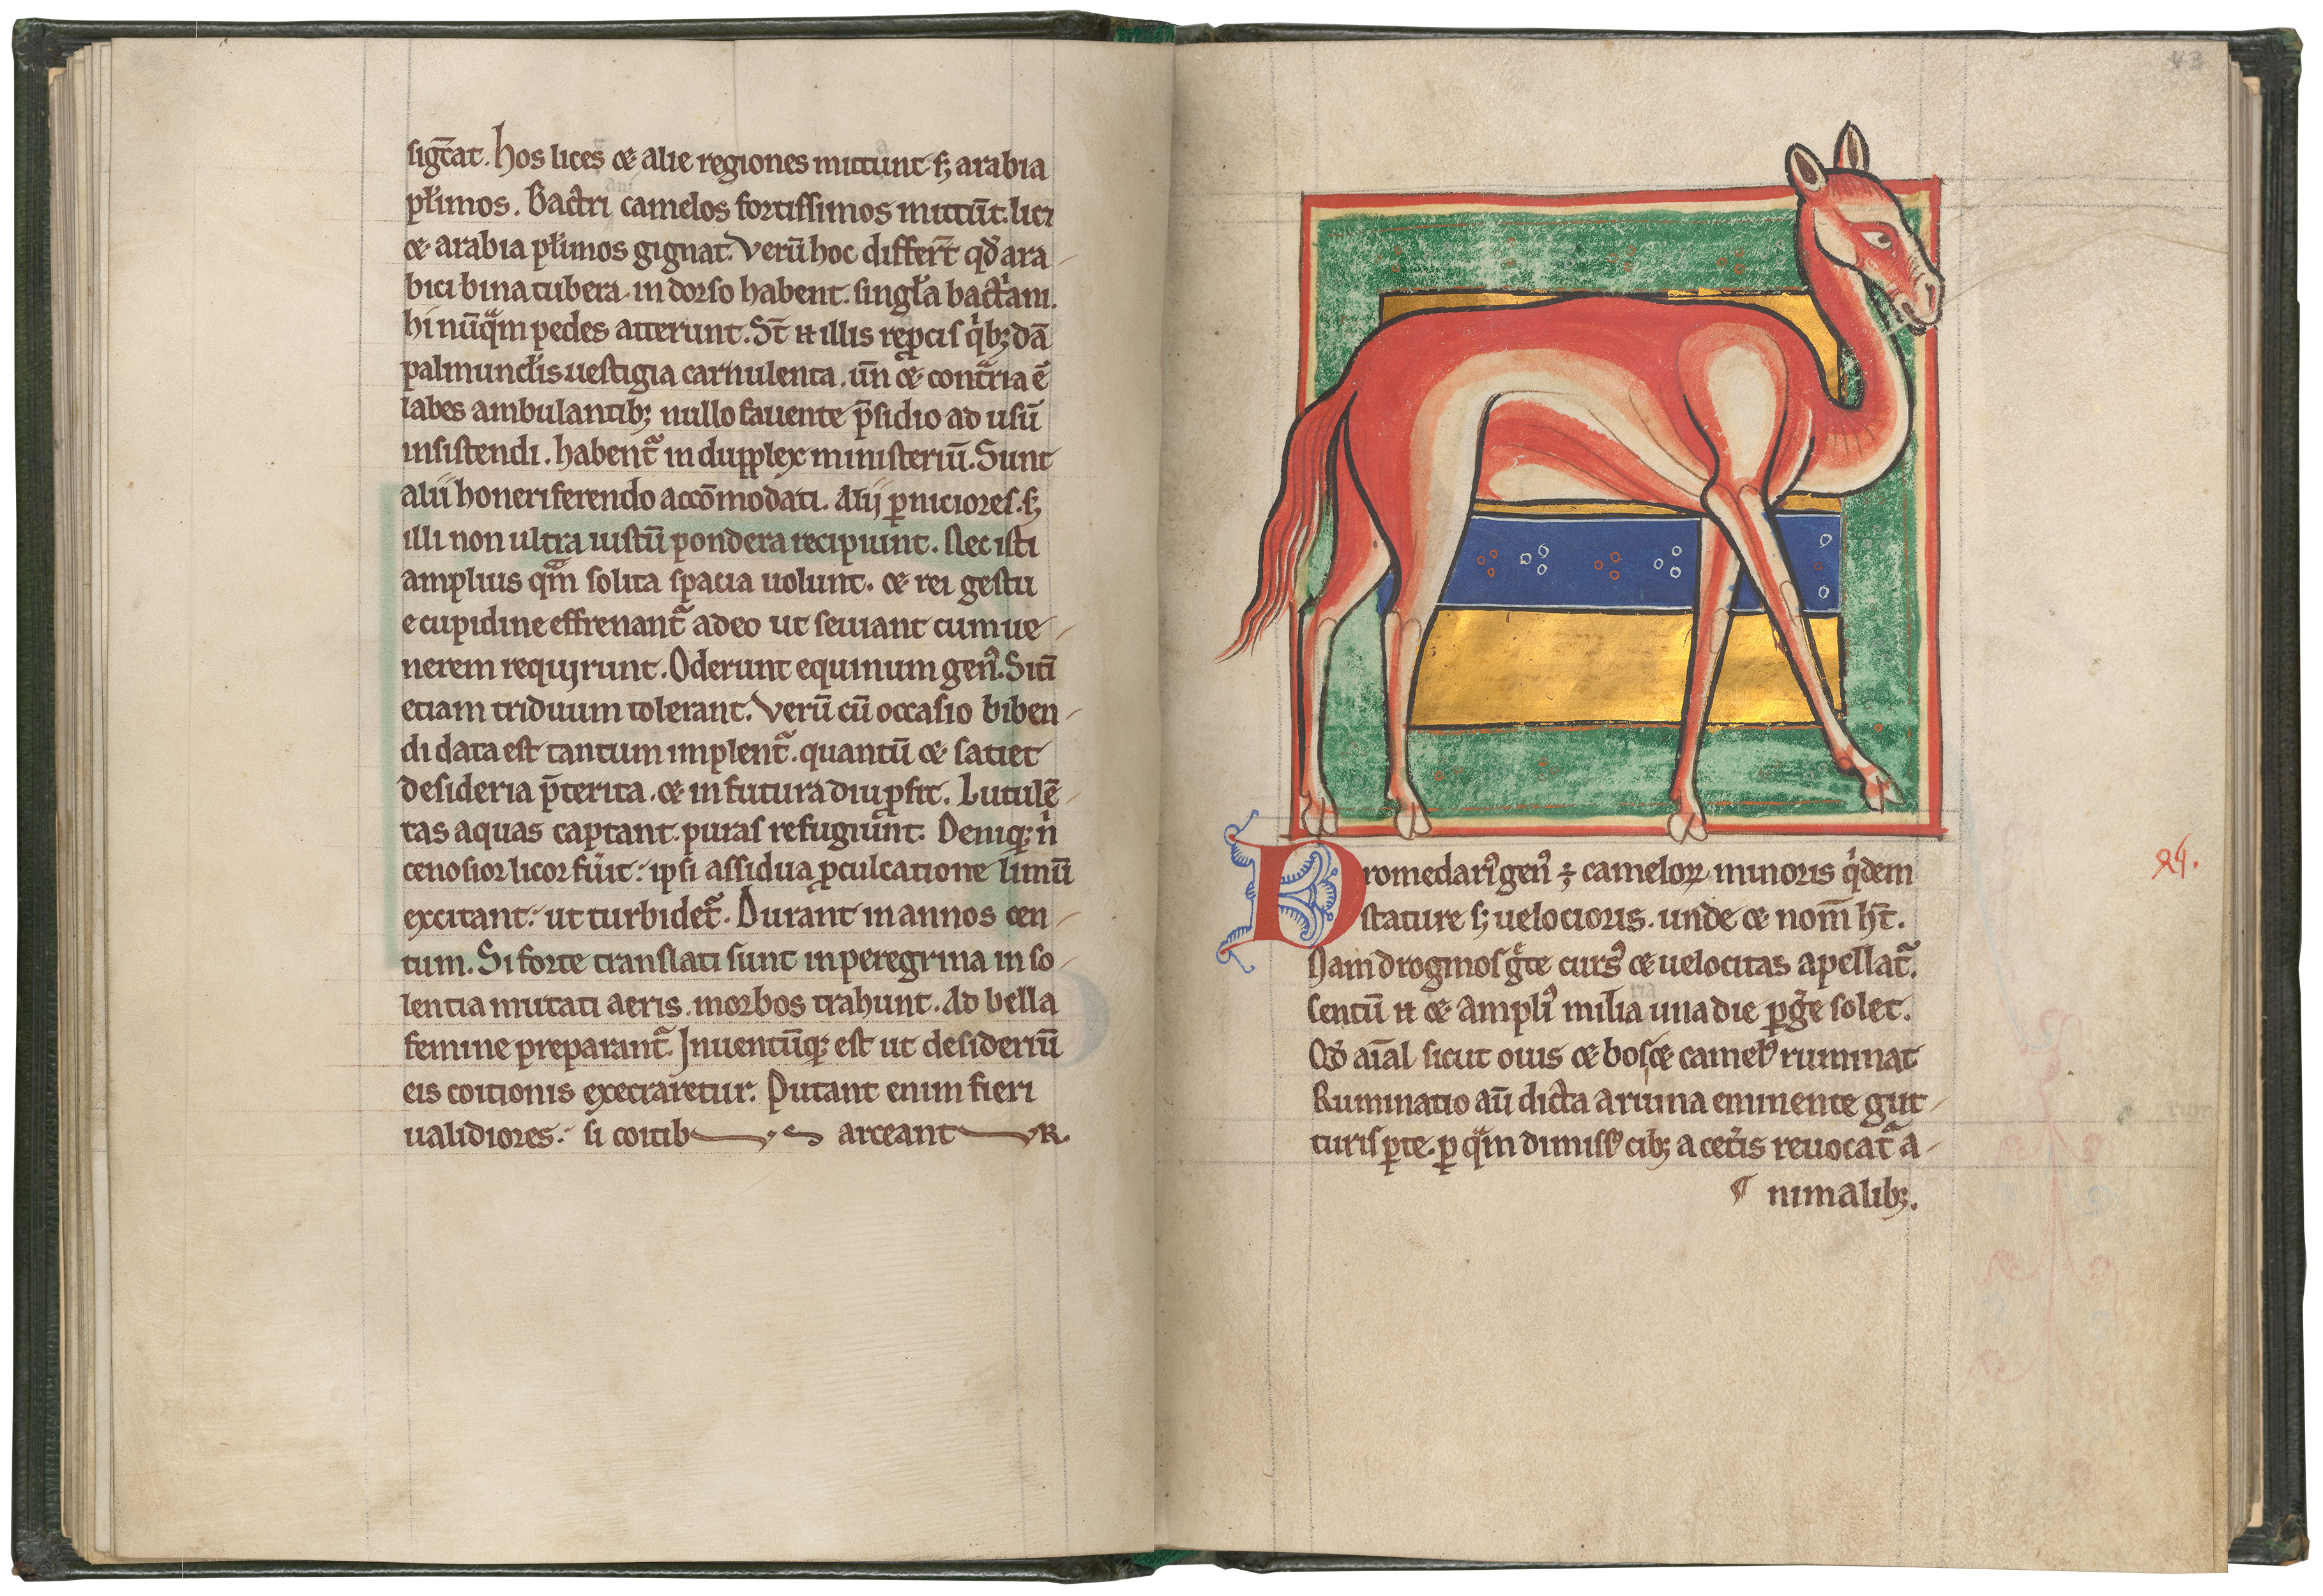 sigᷓtat. hos lices ⁊ alie regiones mittunt. sꝫ arabia
pl̃imos. Bactri camelos fortissimos mittūt. lic̄
⁊ arabia pl̃imos gignat. Verū hoc differt̄ qđ ara
bici bina tubera in dorso habent. singl̃a bactᷓani.
hi nūqᷓm pedes atterunt. St̄ ⁊ illis
uestigia carnulenta. ūn ⁊ contᷓria ē
labes ambulantibꝫ nullo fauente p̄sidio ad usū
insistendi. habentᷓ in dupplex ministeriū. Sunt
alii honeri ferendo accōmodati. Alij ꝑniciores. sꝫ
illi non ultra iustū pondera recipiunt. Nec isti
amplius qᷓm solita spacia uolunt. ⁊ rei gestu
e cupidine effrenantᷓ adeo ut seuiant cum ue
nerem requirunt. Oderunt equinum genꝰ. Sitī
etiam triduum tolerant. Verū cū occasio biben
di data est tantum implentᷓ. quantū ⁊ satiet
desideria p̄terita. ⁊ in futura diu ꝓsit. Lutulē
tas aquas captant. puras refugiunt. Deniqꝫ nͥ
cenosior licor fuĩt: ipsi assidua ꝓculcatione limū
excitant: ut turbidetᷓ. Durant in annos cen
tum. Si forte translati sunt in peregrina inso
lentia mutati aeris. morbos trahunt. Ad bella
femine preparantᷓ. Inuentūqꝫ est ut desideriū
eis coitionis execraretur. Putant enim fieri
ualidiores: si coitib arceant R.
43
Dromedariꝰ genꝰ ÷ cameloꝝ minoris qͥdem
stature sꝫ uelocioris. unde ⁊ nom̄ ht̄.
Nam dromos gᷓce cursꝰ ⁊ uelocitas apellatᷓ.
Centū ⁊ ampliꝰ milia una die ꝑg̃e solet.
Qđ aīal sicut ouis ⁊ bos ⁊ camelꝰ ruminat
Ruminatio aū dicta a ruma eminente gut
turis ꝑte. ꝑ qᷓm dimissꝰ cibꝫ a cet̃is reuocatᷓ a
nimalibꝫ.